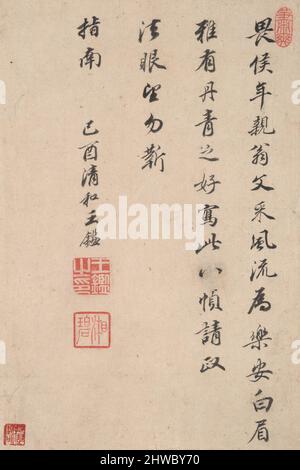 畏侯年親翁文采風流為樂安白眉
雅有丹青之好寫此八幀請政
法眼望勿靳
指南
己酉清和王鑑
王鑑之印
湘碧
alamy
Image ID: 2WBY70
www.alamy.com